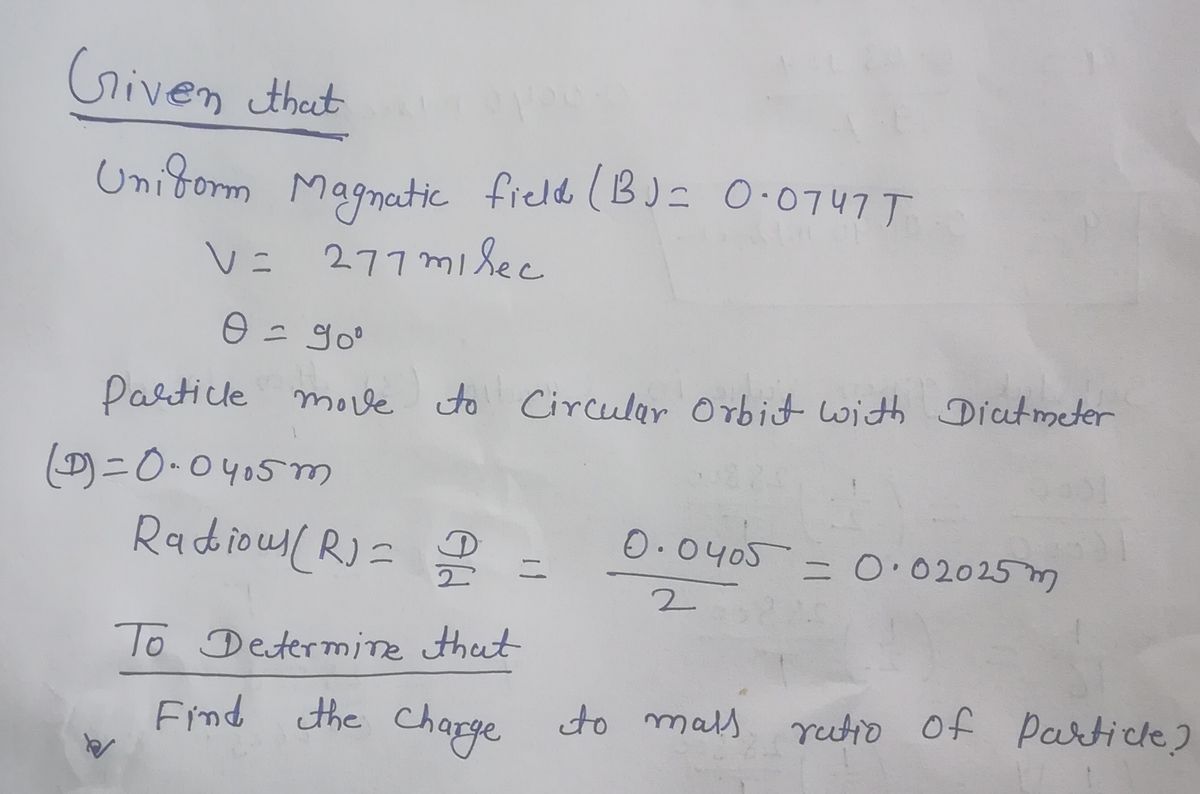 Given that
Uniform Magnatic field (B) = 0.0747 T
V = 277 m/sec
θ = 90°
Particle move to Circular Orbit with Diatmeter
(D) = 0.0405m
Radious(R) = D/2 = 0.0405/2 = 0.02025m
To Determine that
Find the Charge to mass ratio of Particle?